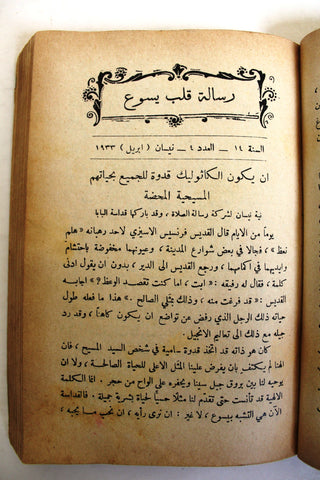 رسالة قلب يسوع
السنة ١٤ — العدد ٤ — نيسان ( ابريل ) ١٩٣٣
ان يكون الكاثوليك قدوة للجميع بحياتهم
المسيحية المحضة
نية نيسان لشركة رسالة الصلاة ، وقد باركها قداسة البابا
يوماً من الايام قال القديس فرنسيس الاسيزي لاحد رهبانه « هلم
نعظ » ، فجالا في بعض شوارع المدينة ، وعيونهما مخفوضة باحتشام
وايديهما في اكمامهما ، ورجع القديس الى الدير ، بدون ان يقول
كلمة ، فقال له رفيقه : « ابت ، اما كنت تقصد الوعظ ؟ » اجابه
القديس : « قد فرغت منه ، وذلك بمثلي الصالح . » هذا ما فعله طول
حياته ذلك الرجل الذي رفض عن تواضع ان يكون كاهناً ، وقد رد
جيله مع ذلك الى تعاليم الانجيل .
كان هو ذاته قد اتخذ قدوة سامية في شخص السيد المسيح ، فان
الهنا لم يكتفِ بان يفرض علينا المثل الاعلى للحياة الصالحة ، ولا ان
يوحيه لنا بين بروق جبل سينا ويحفره على الواح من حجر . انما الكلمة
الالهية قد تأنست حتى تقدّم لنا مثلًا حسيًا لحياة بشرية جميلة . فالقداسة
الآن هي التشبه بيسوع ، لا غير : ان نرى رأيه ، ان نحب ما يحبه ،